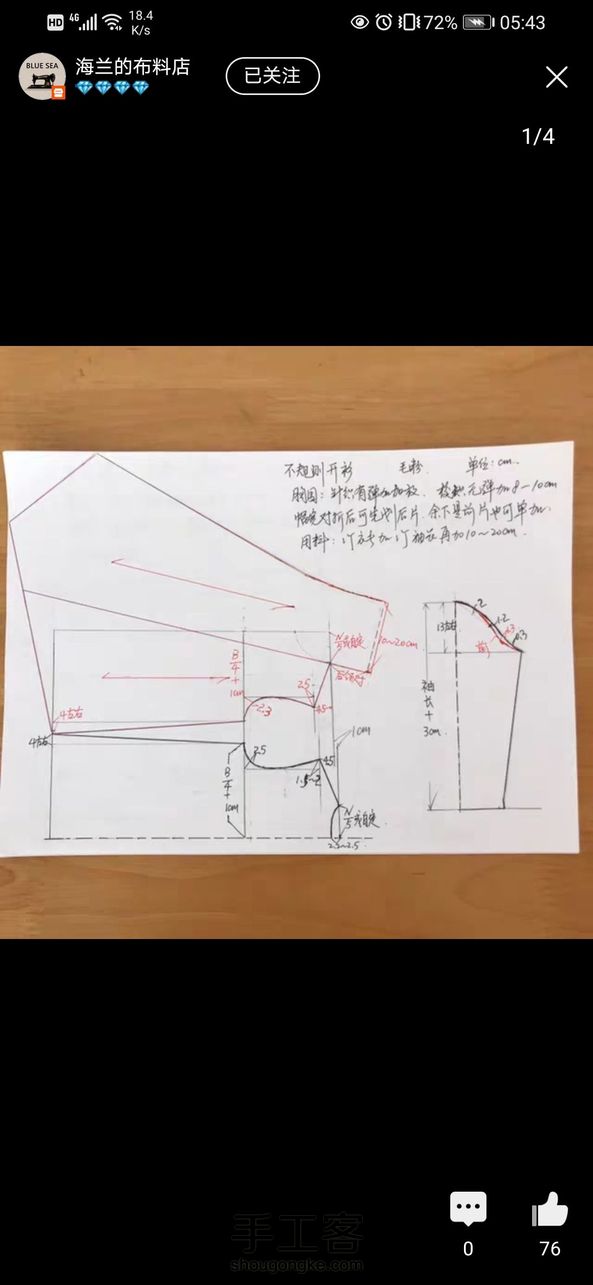 HD 4G 18.4 K/s 72% 05:43
BLUE SEA
海兰的布料店
已关注
1/4
不规则开衫 单位:cm.
胸围:针织有弹加放. 梭织无弹加8-10cm
幅宽对折后可先划后片.余下是前片也可单加.
用料:1个衣长加1个袖长再加10~20cm.
10~20cm
N/5或自定
后领
B/4+1cm
2.5
4.5
2.3
4左右
4左右
3.5
4.5
1.5~2
1cm
B/4+1cm
N/5或自定
2.2~2.5
13左右
2
1.2
0.3
0.3
前
袖长+3cm
手工客
shougongke.com
0
76